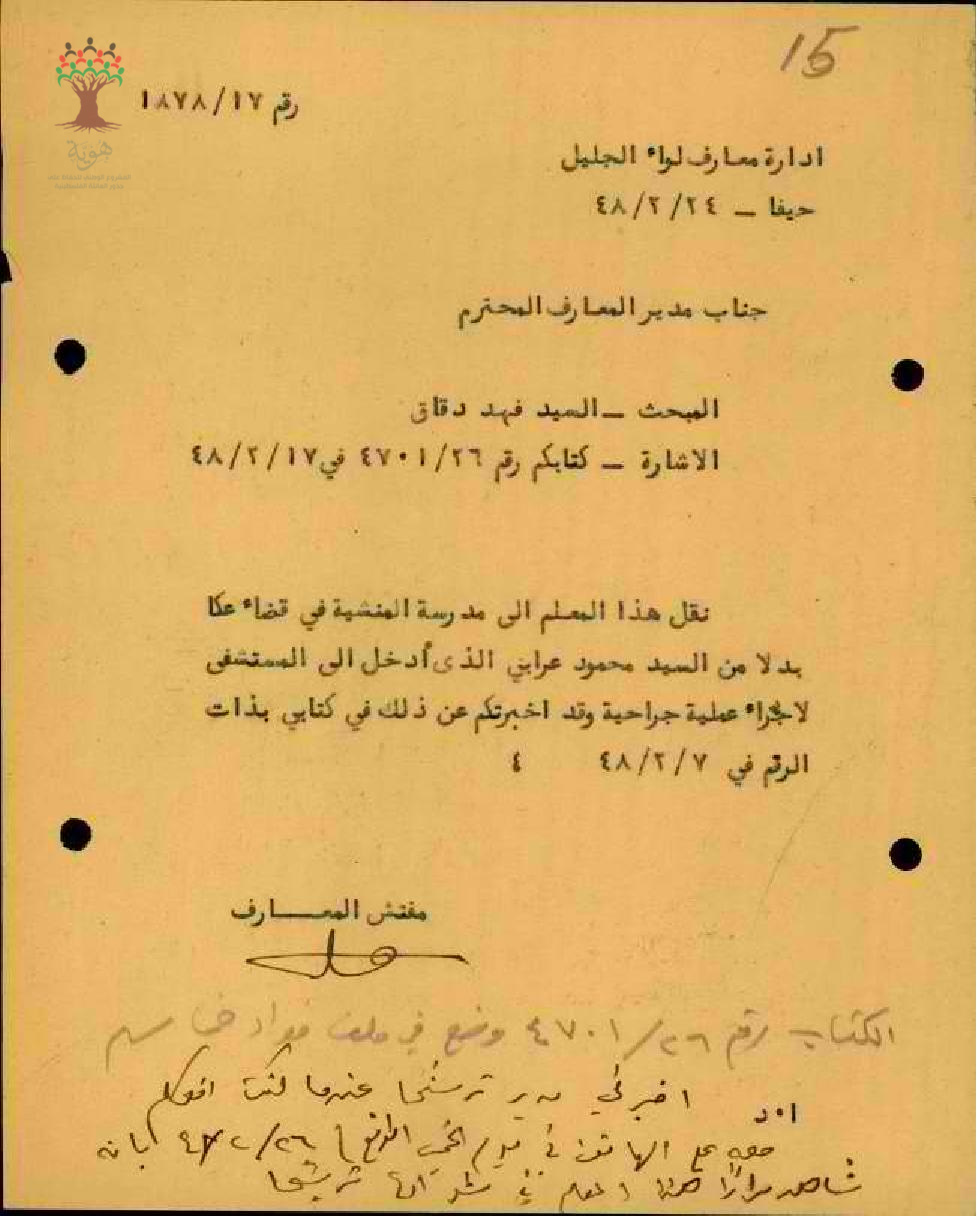 15
هوية
رقم ١٨٧٨/١٧
ادارة معارف لواء الجليل
حيفا ــ ٤٨/٢/٢٤
جناب مدير المعارف المحترم
المبحث ــ السيد فهد دقاق
الاشارة ــ كتابكم رقم ٤٧٠١/٢٦ في ٤٨/٢/١٧
نقل هذا المعلم الى مدرسة المنشية في قضاء عكا
بدلا من السيد محمود عرابي الذى أدخل الى المستشفى
لاجراء عملية جراحية وقد اخبرتكم عن ذلك في كتابي بذات
الرقم في ٤٨/٢/٧ ٤
مفتش المعــــارف
الكتاب رقم ٤٧٠١/٢٦ وضع في ملف فؤاد
اخبرني مدير ترشيحا عندما كنت
على الهاتف في يوم الخميس ٢٦/٢/ بانه
شاهد مرارًا هذا المعلم في ترشيحا